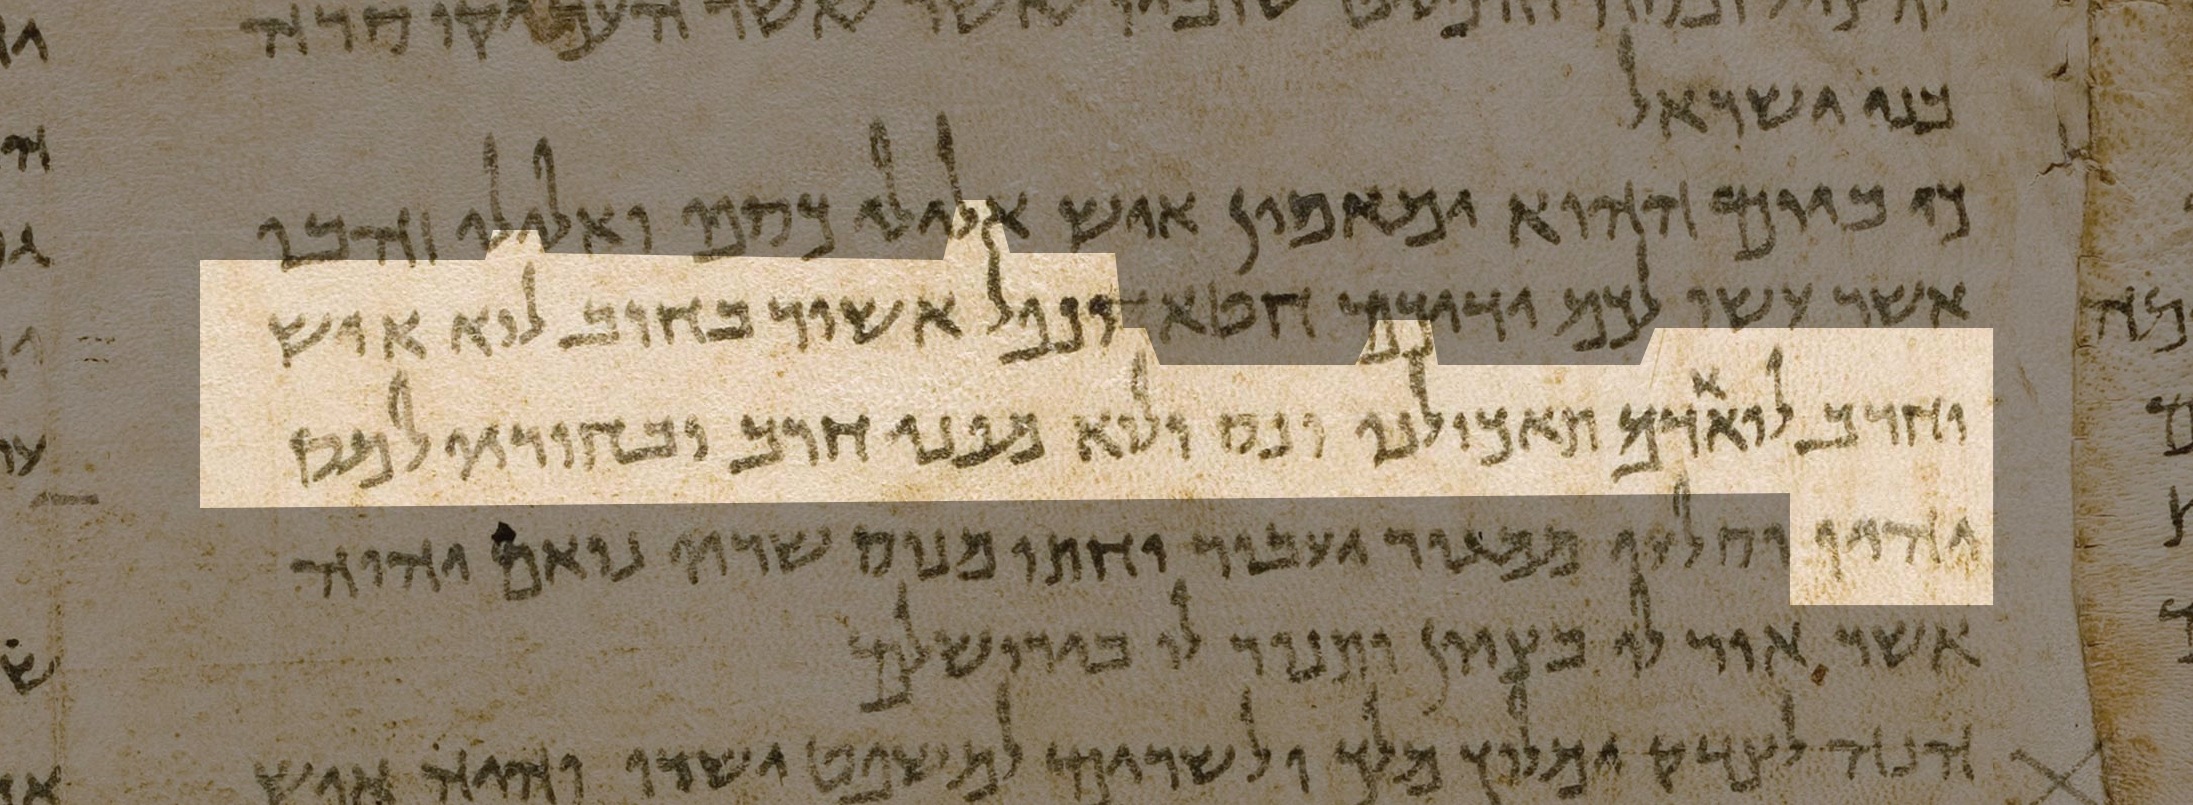 העמיקו סרה
בני ישראל
כי ביום ההוא ימאסון איש אלילי כספו ואלילי זהבו
אשר עשו לכם ידיכם חטא ונפל אשור בחרב לוא איש
וחרב לוא אדם תאוכלנו ונס ולוא מפני חרב ובחוריו למס
יהיו וסלעו ממגור יעבור וחתו מנס שריו נואם יהוה
אשר אור לו בציון ותנור לו בירושלים
הנה לצדק ימלוך מלך ולשרים למשפט ישרו והיה איש